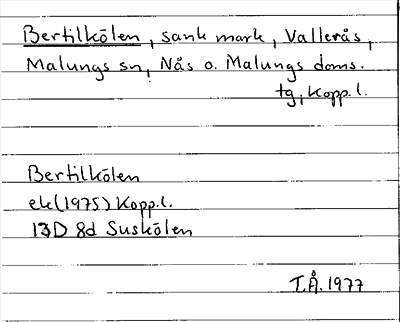 Bertilkölen, sank mark, Vallerås,
Malungs sn, Nås o. Malungs doms.
tg, Kopp. l.
Bertilkölen
ek (1975) Kopp. l.
13D 8d Suskölen
T.Å. 1977